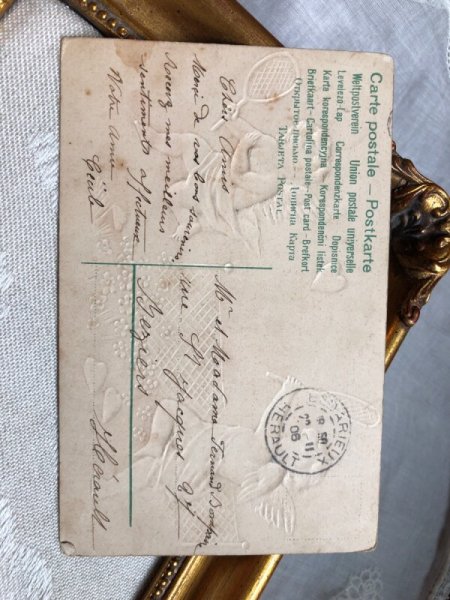 Carte postale — Postkarte
Weltpostverein Union postale universelle
Levelező-Lap Correspondenzkarte Dopisnice
Karta korespondencyjna — Korespondenční lístek
Briefkaart — Cartolina postale — Post card — Brefkort
Открытое письмо —
Chers Amis
Merci de vos bons souvenirs
Recevez mes meilleurs
sentiments affectueux
Votre amie
Cécile
Mr et Madame
rue St Jacques
Béziers
Hérault
06
HÉRAULT